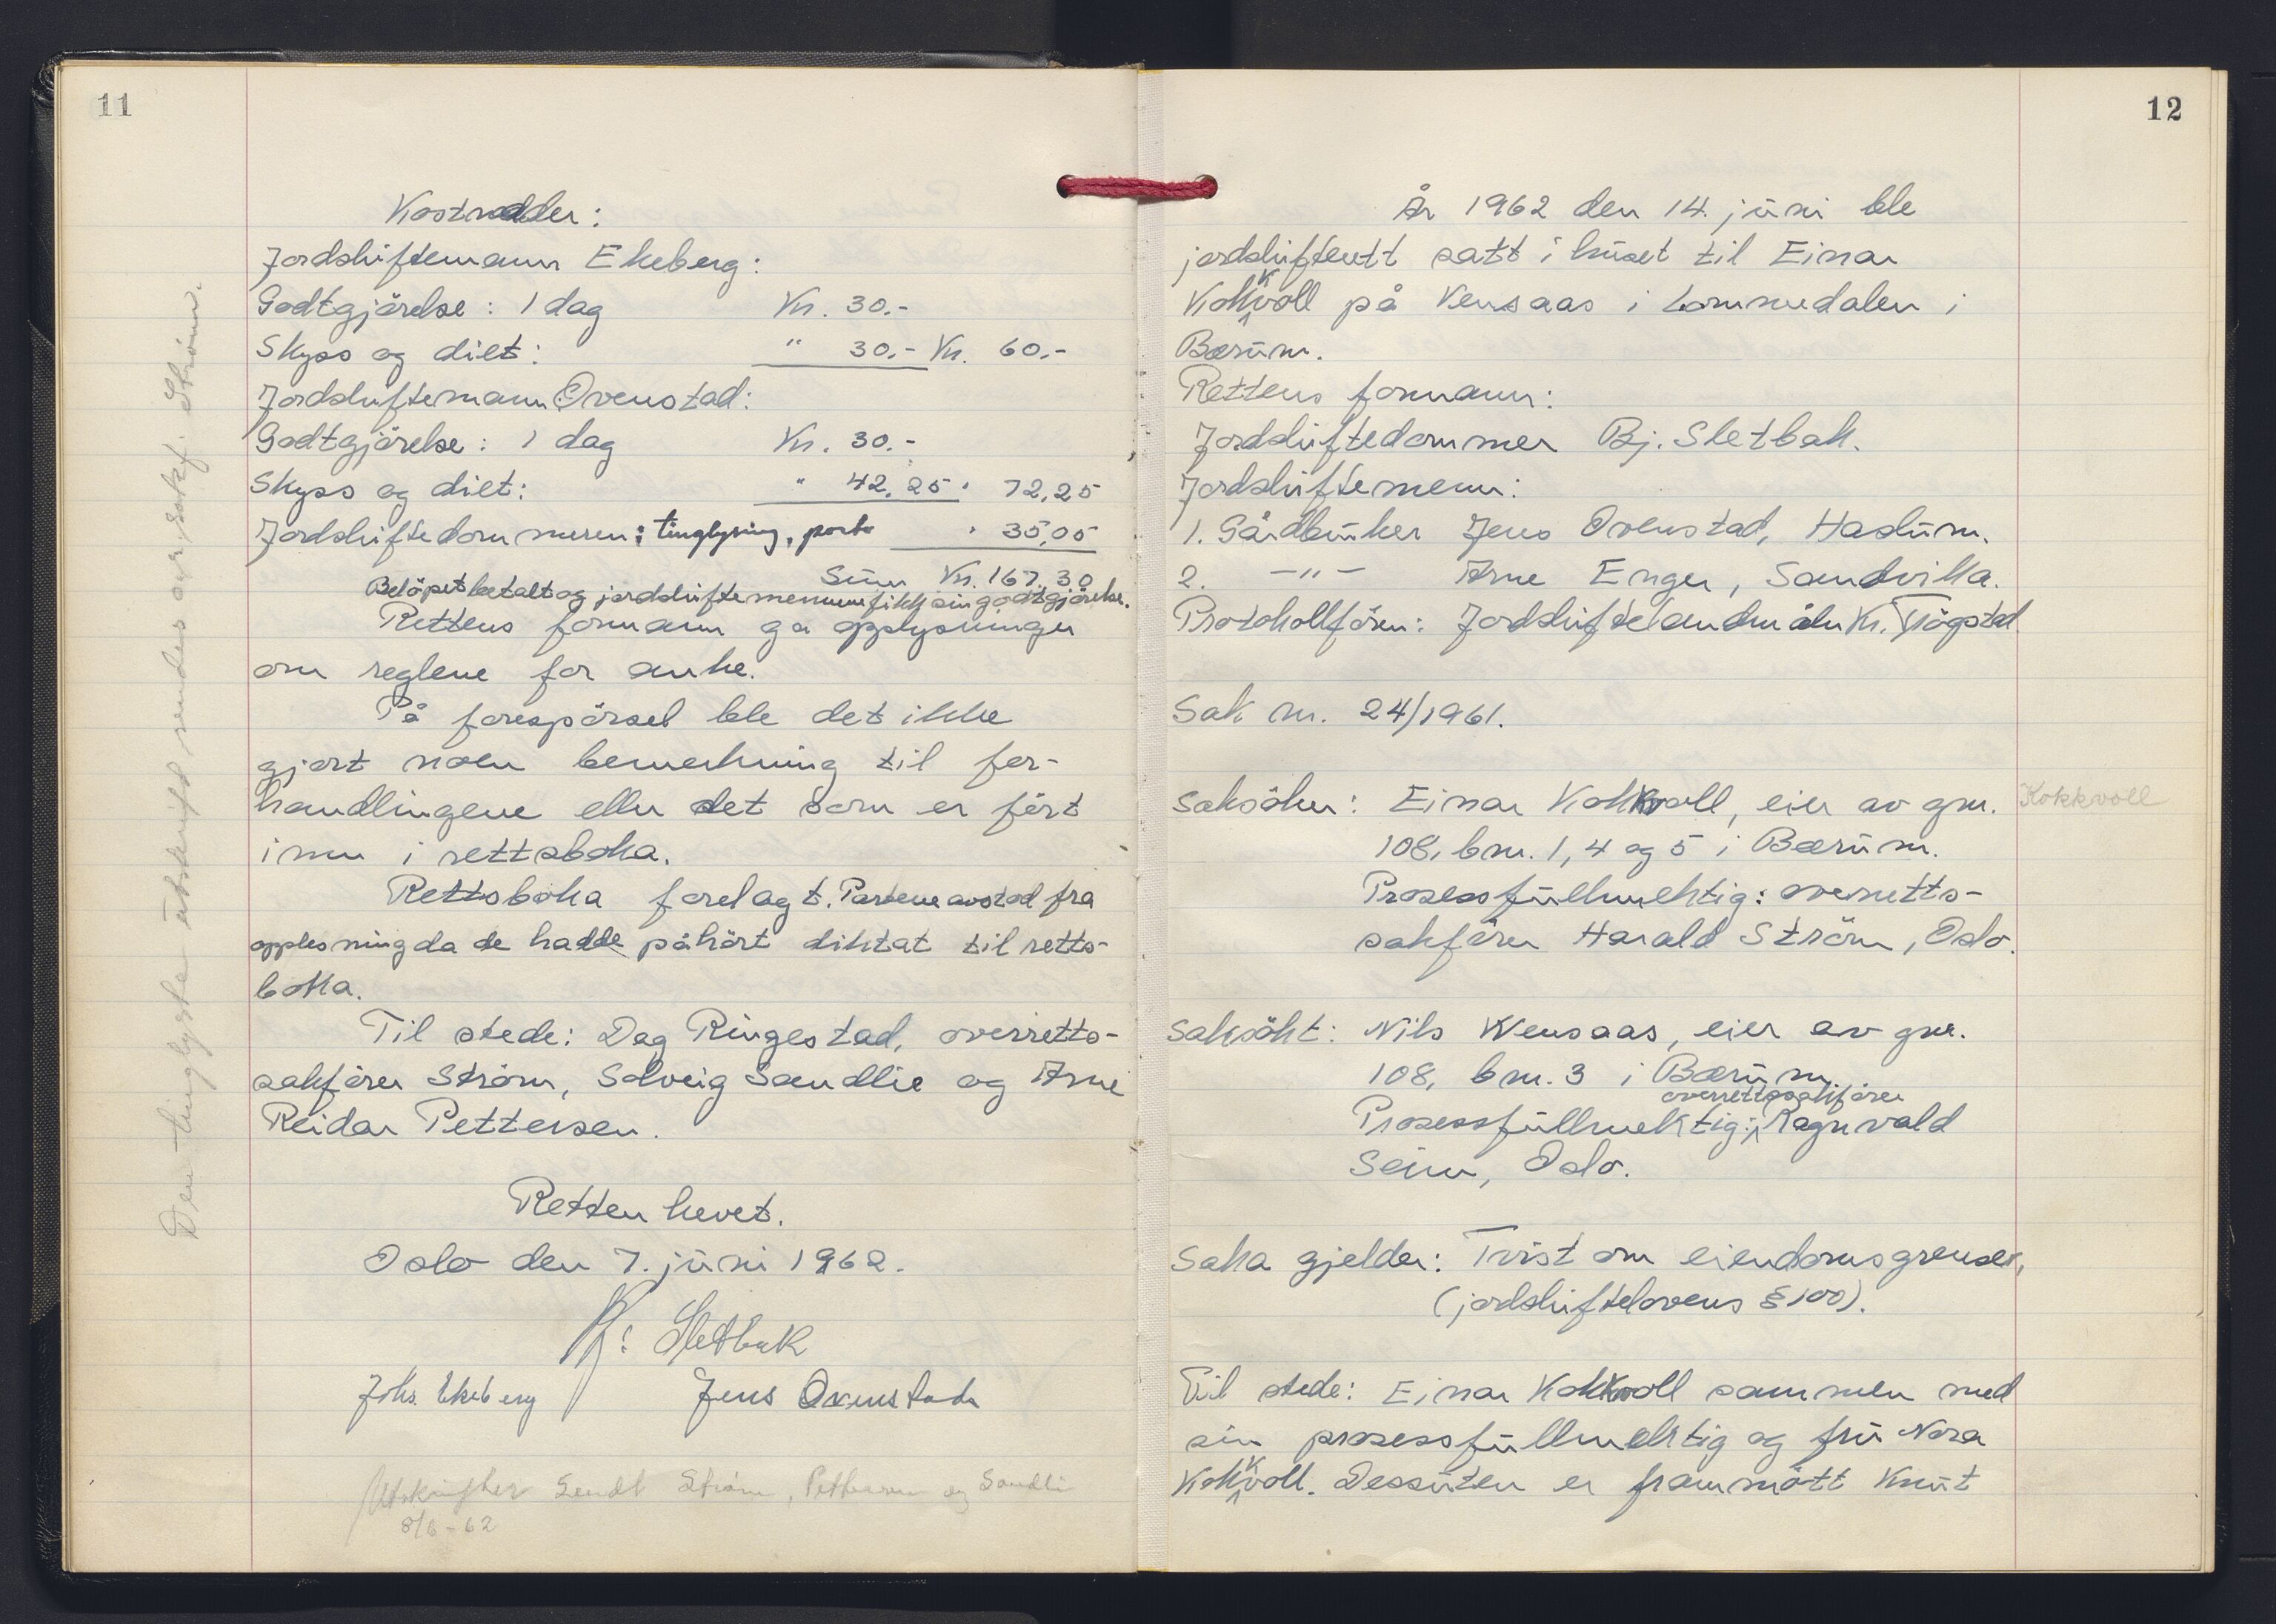 11
Kostnader:
Jordskiftemann Ekeberg:
Godtgjörelse: 1 dag Kr. 30.-
Skyss og diet: " 30.- Kr. 60.-
Jordskiftemann Ovenstad:
Godtgjörelse: 1 dag Kr. 30.-
Skyss og diet: " 42,25 " 72,25
Jordskiftedommeren: tinglysing, porto " 35,05
Sum Kr. 167.30
Belöpet betalt og jordskiftemennene fikk sin godtgjörelse.
Rettens formann ga opplysninger
om reglene for anke.
På forespörsel ble det ikke
gjort noen bemerkning til for-
handlingene eller det som er fört
inn i rettsboka.
Rettsboka forelagt. Partene avstod fra
opplesning da de hadde påhört diktat til retts-
boka.
Til stede: Dag Ringestad, overretts-
sakförer Ström, Solveig Sandlie og Arne
Reidar Pettersen.
Retten hevet.
Oslo den 7. juni 1962.
Bj: Sletbak
Johs. Ekeberg Jens Ovenstad
Utskrifter sendt Ström, Pettersen og Sandli
8/6-62
Den tinglyste utskrift sendes overrsakf. Ström.
12
År 1962 den 14. juni ble
jordskifterett satt i huset til Einar
Kokkvoll på Vensaas i Lommedalen i
Bærum.
Rettens formann:
Jordskiftedommer Bj. Sletbak.
Jordskiftemenn:
1. Gårdbruker Jens Ovenstad, Haslum.
2. -"- Arne Enger, Sandvika.
Protokollförer: Jordskiftelandmåler Kr. Trögstad
Sak nr. 24/1961.
Saksöker: Einar Kokkvoll, eier av gnr. Kokkvoll
108, bnr. 1, 4 og 5 i Bærum.
Prosessfullmektig: overretts-
sakförer Harald Ström, Oslo.
Saksökt: Nils Wensaas, eier av gnr.
108, bnr. 3 i Bærum.
Prosessfullmektig: overrettssakförer Ragnvald
Seim, Oslo.
Saka gjelder: Tvist om eiendomsgrenser,
(jordskiftelovens § 100).
Til stede: Einar Kokkvoll sammen med
sin prosessfullmektig og fru Nora
Kokkvoll. Dessuten er frammött Knut